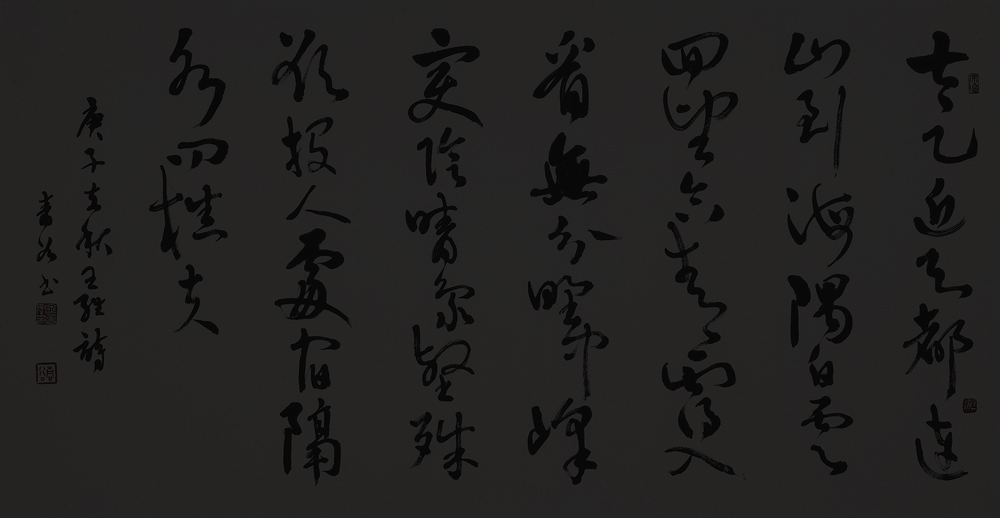 太乙近天都連
山到海隅白雲
回望合青靄入
看無分野中峰
變陰晴眾壑殊
欲投人處宿隔
水問樵夫
庚子立秋王維詩
書